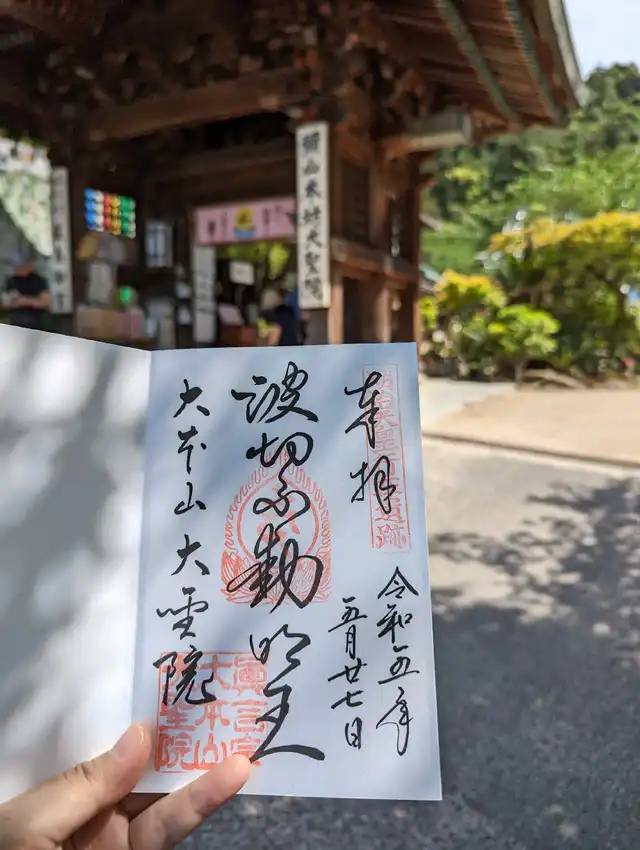 彌山本坊大聖院
奉拝
令和五年
五月廿七日
波切不動明王
大本山大聖院
眞言宗
大本山
大聖院